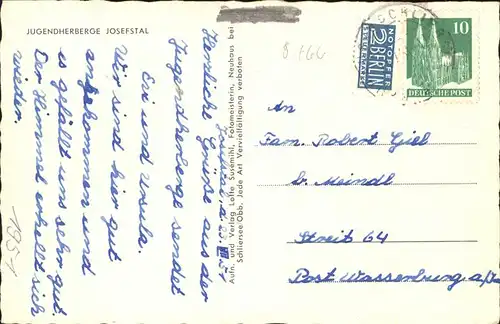 JUGENDHERBERGE JOSEFSTAL
Josefstal, d. 23. III. 51
Herzliche Grüße aus der
Jugendherberge sendet
Eri und Ursula.
Wir sind hier gut
angekommen und
es gefällt uns sehr gut.
Der Himmel erhellt sich
wieder.
1951
Aufn. und Verlag Lotte Susemihl, Fotomeisterin, Neuhaus bei
Schliersee/Obb. Jede Art Vervielfältigung verboten
NOTOPFER
2 BERLIN
STEUERMARKE
10
DEUTSCHE POST
An
Fam. Robert Giel
b. Meindl
Streit 64
Post Wasserburg a/Inn